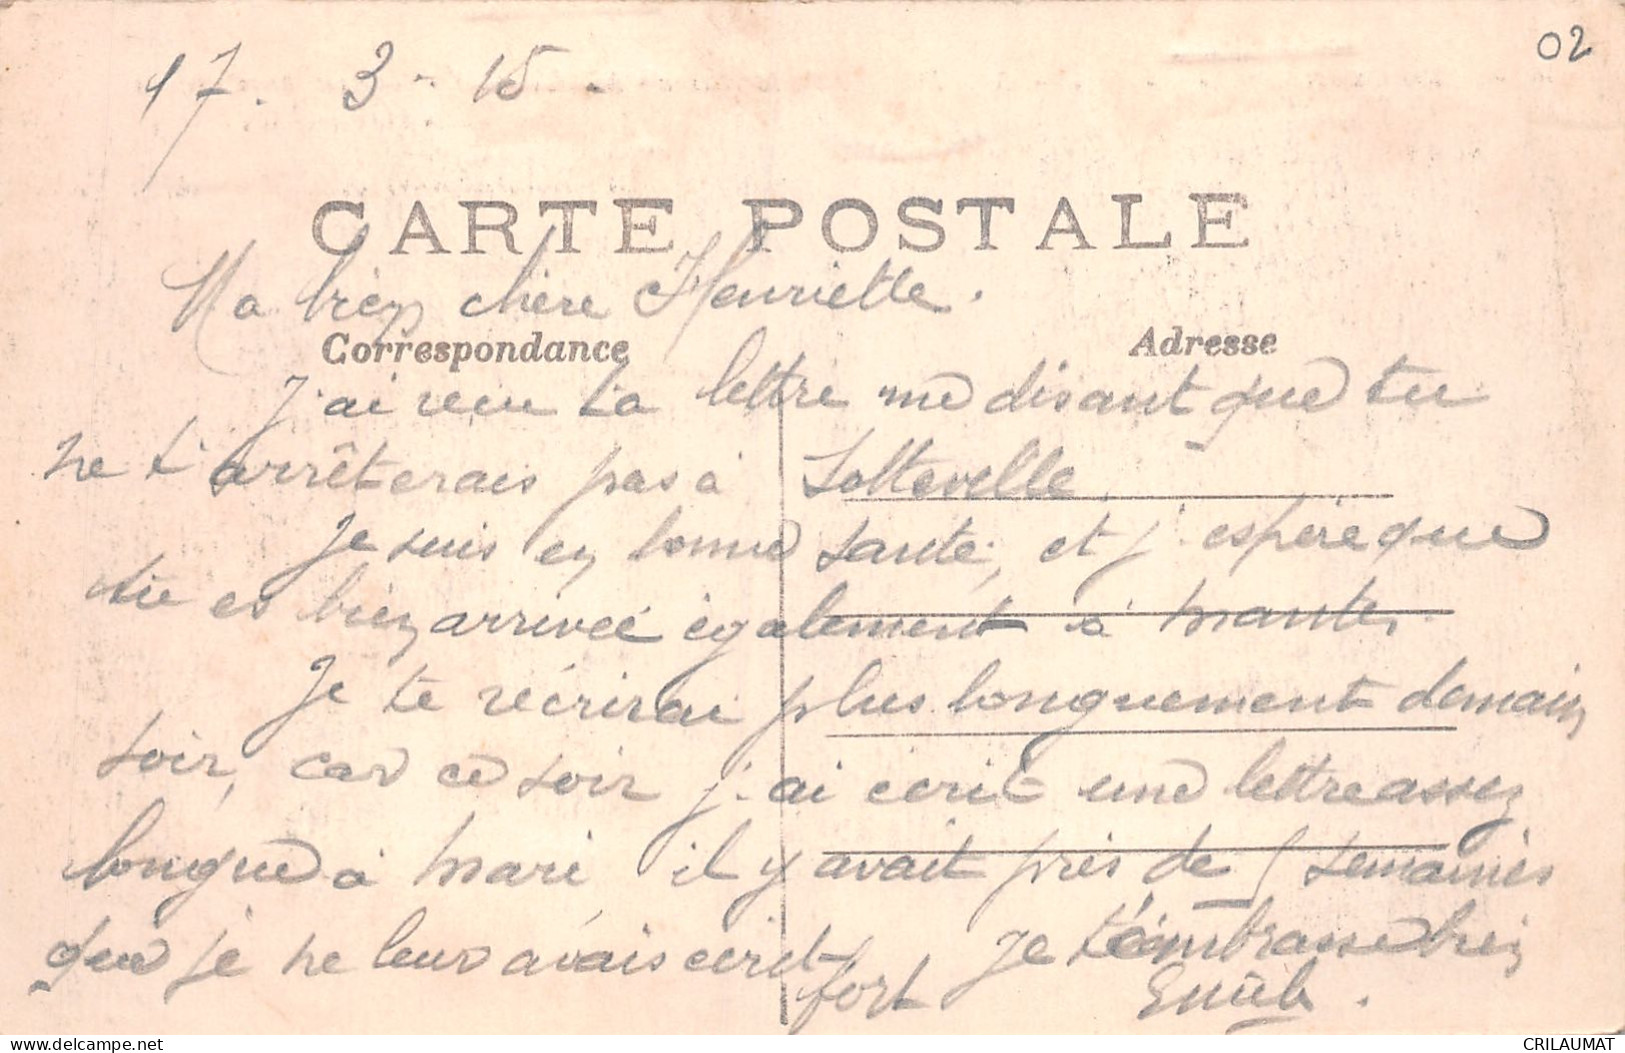 02
17. 3 - 15 -
CARTE POSTALE
Ma bien chère Henriette.
Correspondance
Adresse
J'ai reçu ta lettre me disant que tu
ne t'arrêterais pas à Sotteville.
Je suis en bonne santé, et j'espère que
tu es bien arrivée également à Mantes.
Je te récrirai plus longuement demain
soir, car ce soir j'ai écrit une lettre assez
longue à Mari il y avait près de semaines
que je ne leur avais écrit Je t'embrasse bien
fort Emile.
delcampe.net
CRILAUMAT